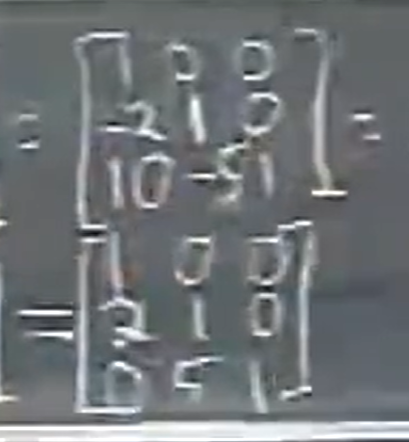 = [1 0 0
-2 1 0
10 -5 1] =
= [1 0 0
2 1 0
0 5 1]